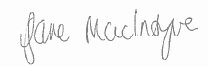 Jane MacIndyre